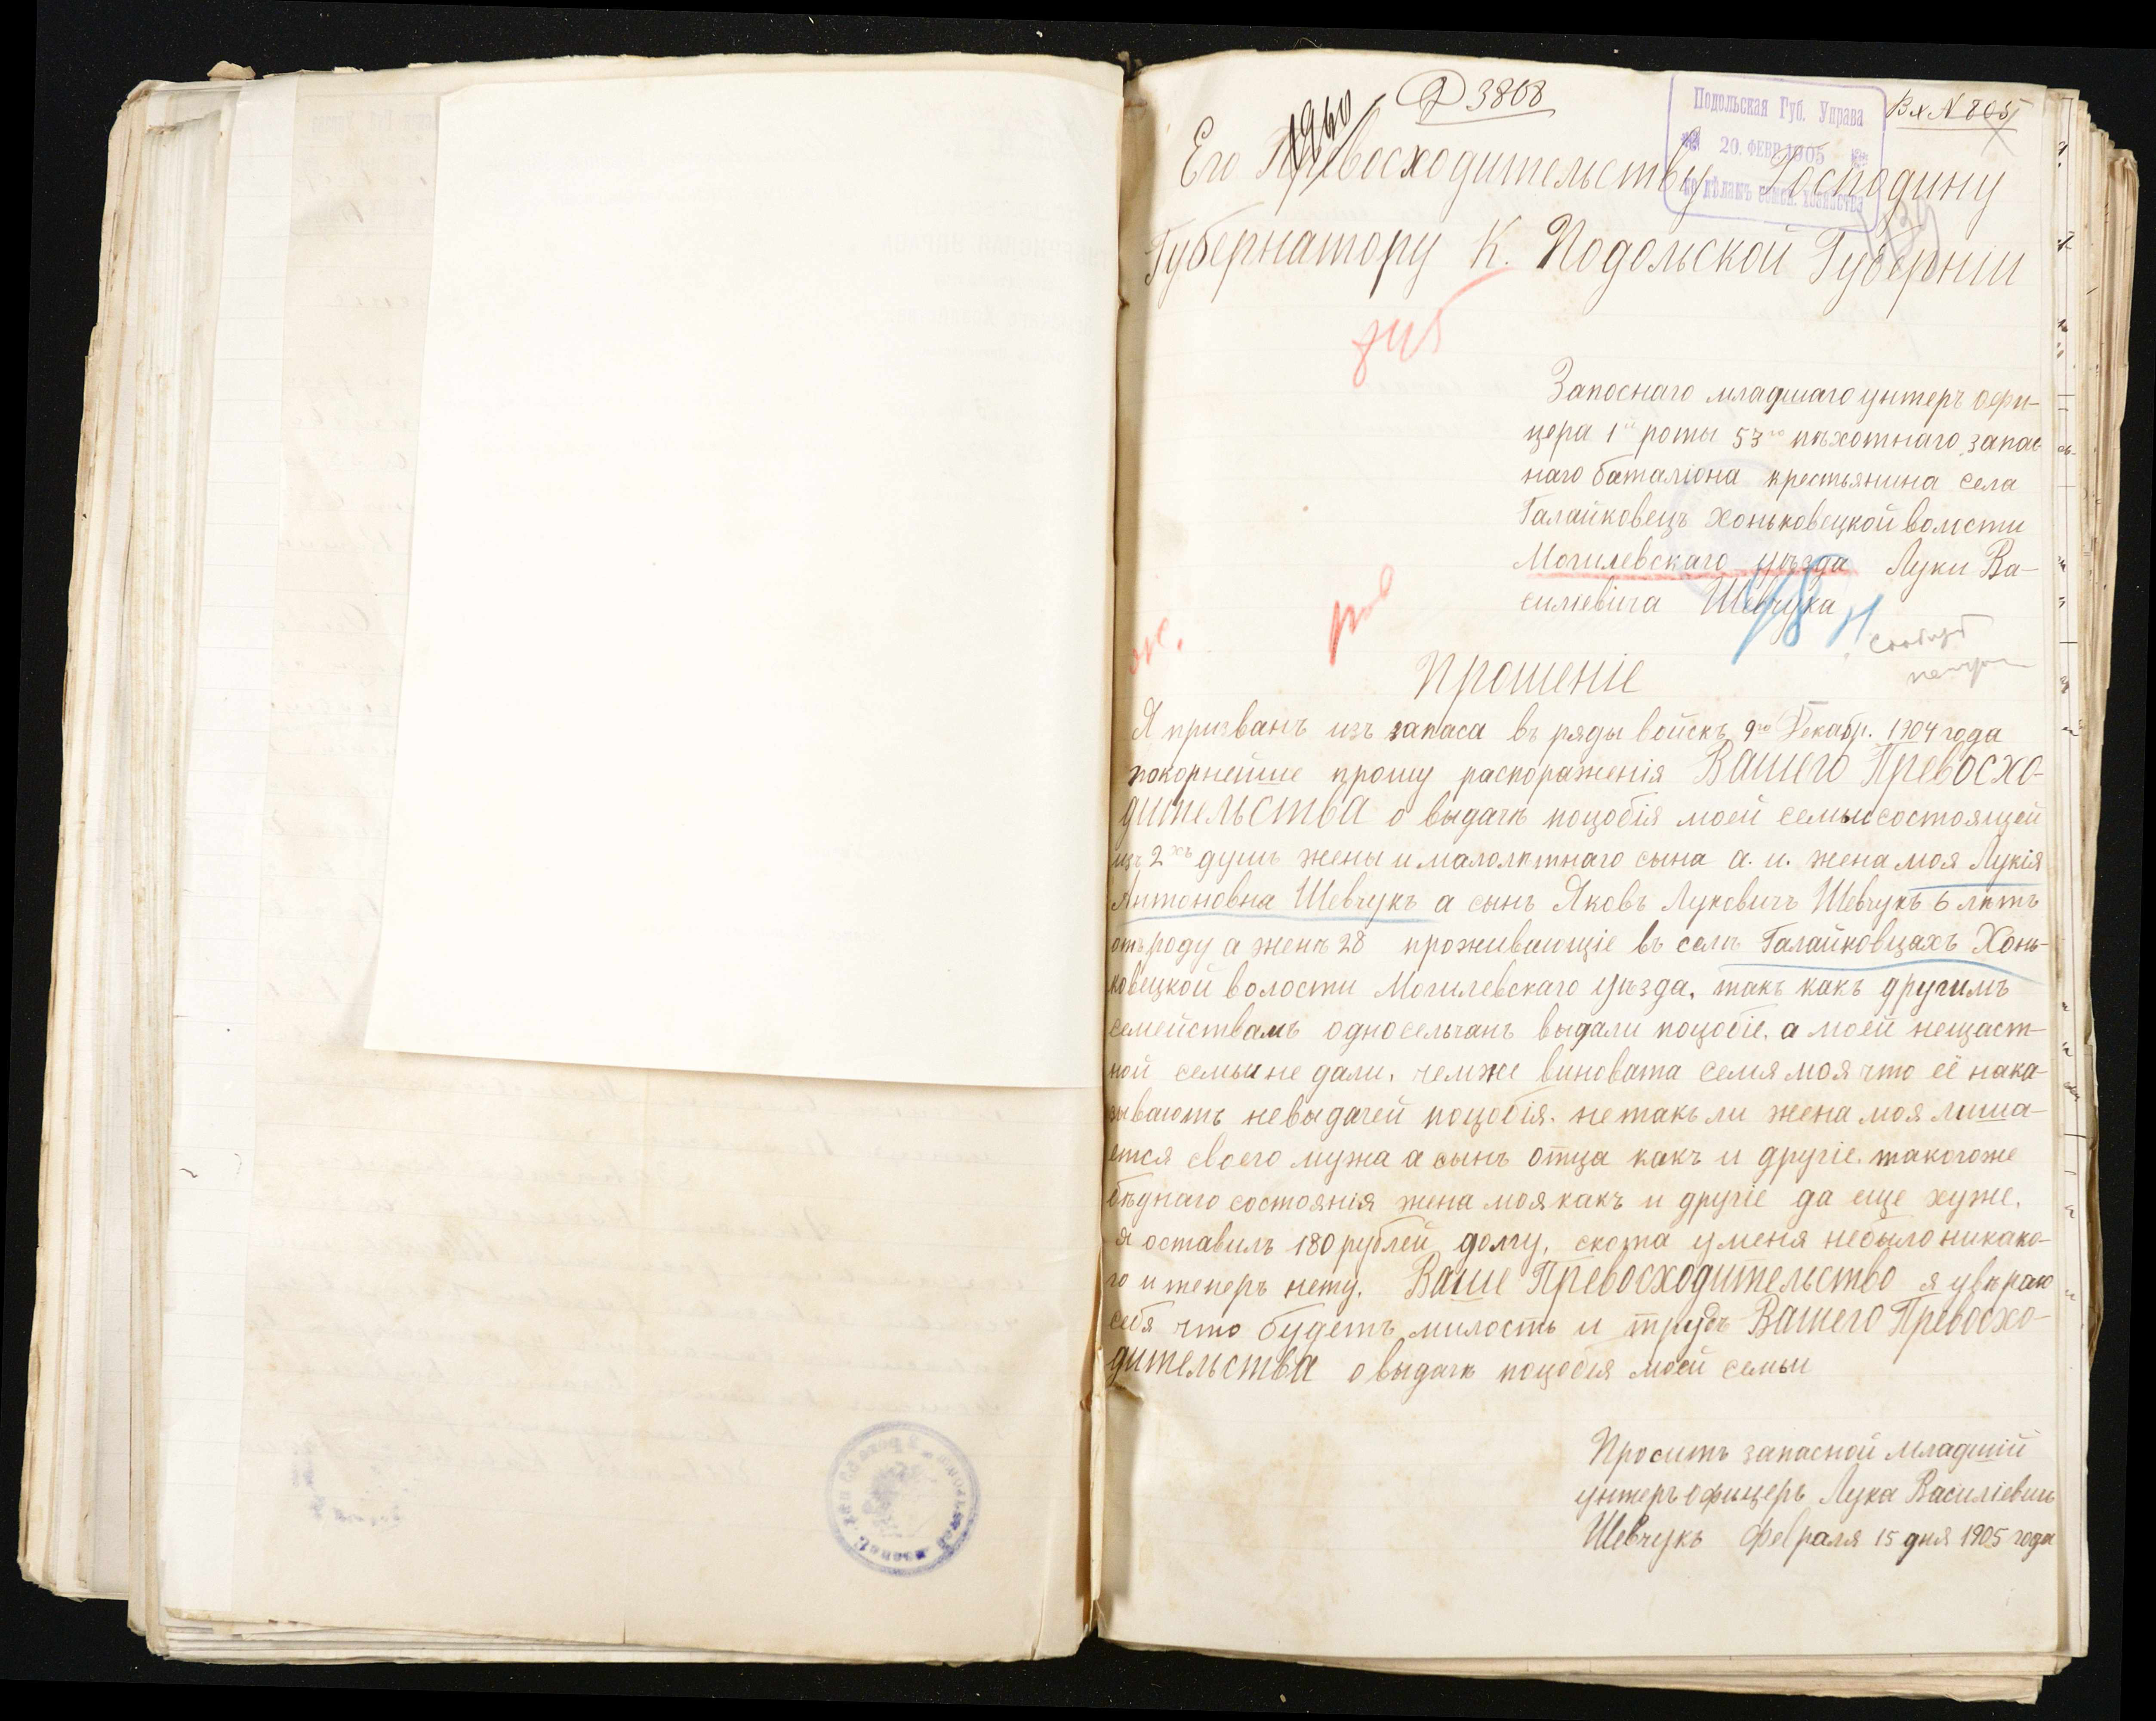 3808
1960
Вх N 805
Подольская Губ. Управа
20. ФЕВР. 1905
по дѣламъ земск. хозяйства
Его Превосходительству Господину
Губернатору К. Подольской Губерніи
Запоснаго младшаго унтеръ офи-
цера 1й роты 53го пѣхотнаго запас
наго баталіона крестьянина села
Галайковецъ Хоньковецкой волости
Могилевскаго уѣзда Луки Ва-
силіевича Шевчука
Прошеніе
Я призванъ изъ запаса въ ряды войскъ 9го Декабр. 1904 года
покорнейше прошу распораженія Вашего Превосхо-
дительства о выдачѣ поцобія моей семьи состоящей
изъ 2хъ душъ жены и малолѣтнаго сына а. и. жена моя Лукія
Антоновна Шевчукъ а сынъ Яковъ Луковичъ Шевчукъ 6 лѣтъ
отъ роду а женѣ 28 проживающіе въ селѣ Галайковцахъ Хонь-
ковецкой волости Могилевскаго уѣзда, такъ какъ другимъ
семействамъ односельчанъ выдали поцобіе, а моей нещаст-
ной семьи не дали, чемже виновата семя моя что её нака-
зываютъ невыдачей поцобія. нетакъ ли жена моя лиша-
ется своего мужа а сынъ отца какъ и другіе. такогоже
бѣднаго состоянія жена моя какъ и другіе да еще хуже,
я оставилъ 180 рублей долгу, скота уменя небыло никако-
го и теперъ нету. Ваше Превосходительство я увѣраю
себя что будетъ милость и трудъ Вашего Превосхо-
дительства о выдачѣ поцобія моей семьи
Проситъ запасной младшій
унтеръ офицеръ Лука Василіевичъ
Шевчукъ февраля 15 дня 1905 года